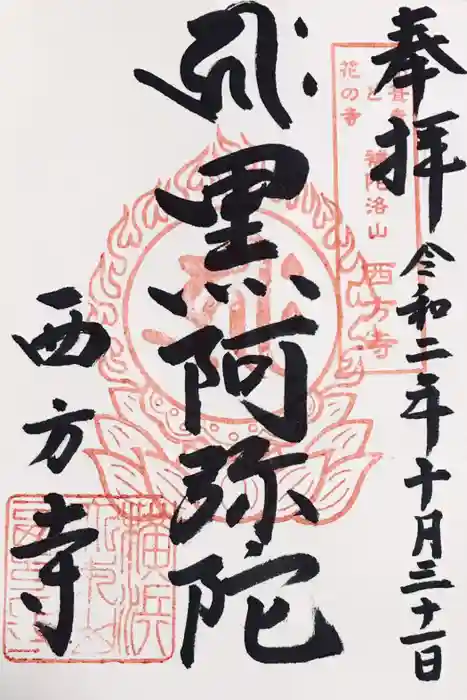 奉拝
令和二年十月三十一日
と
花の寺
補陀洛山
西方寺
黒阿弥陀
西方寺
横浜